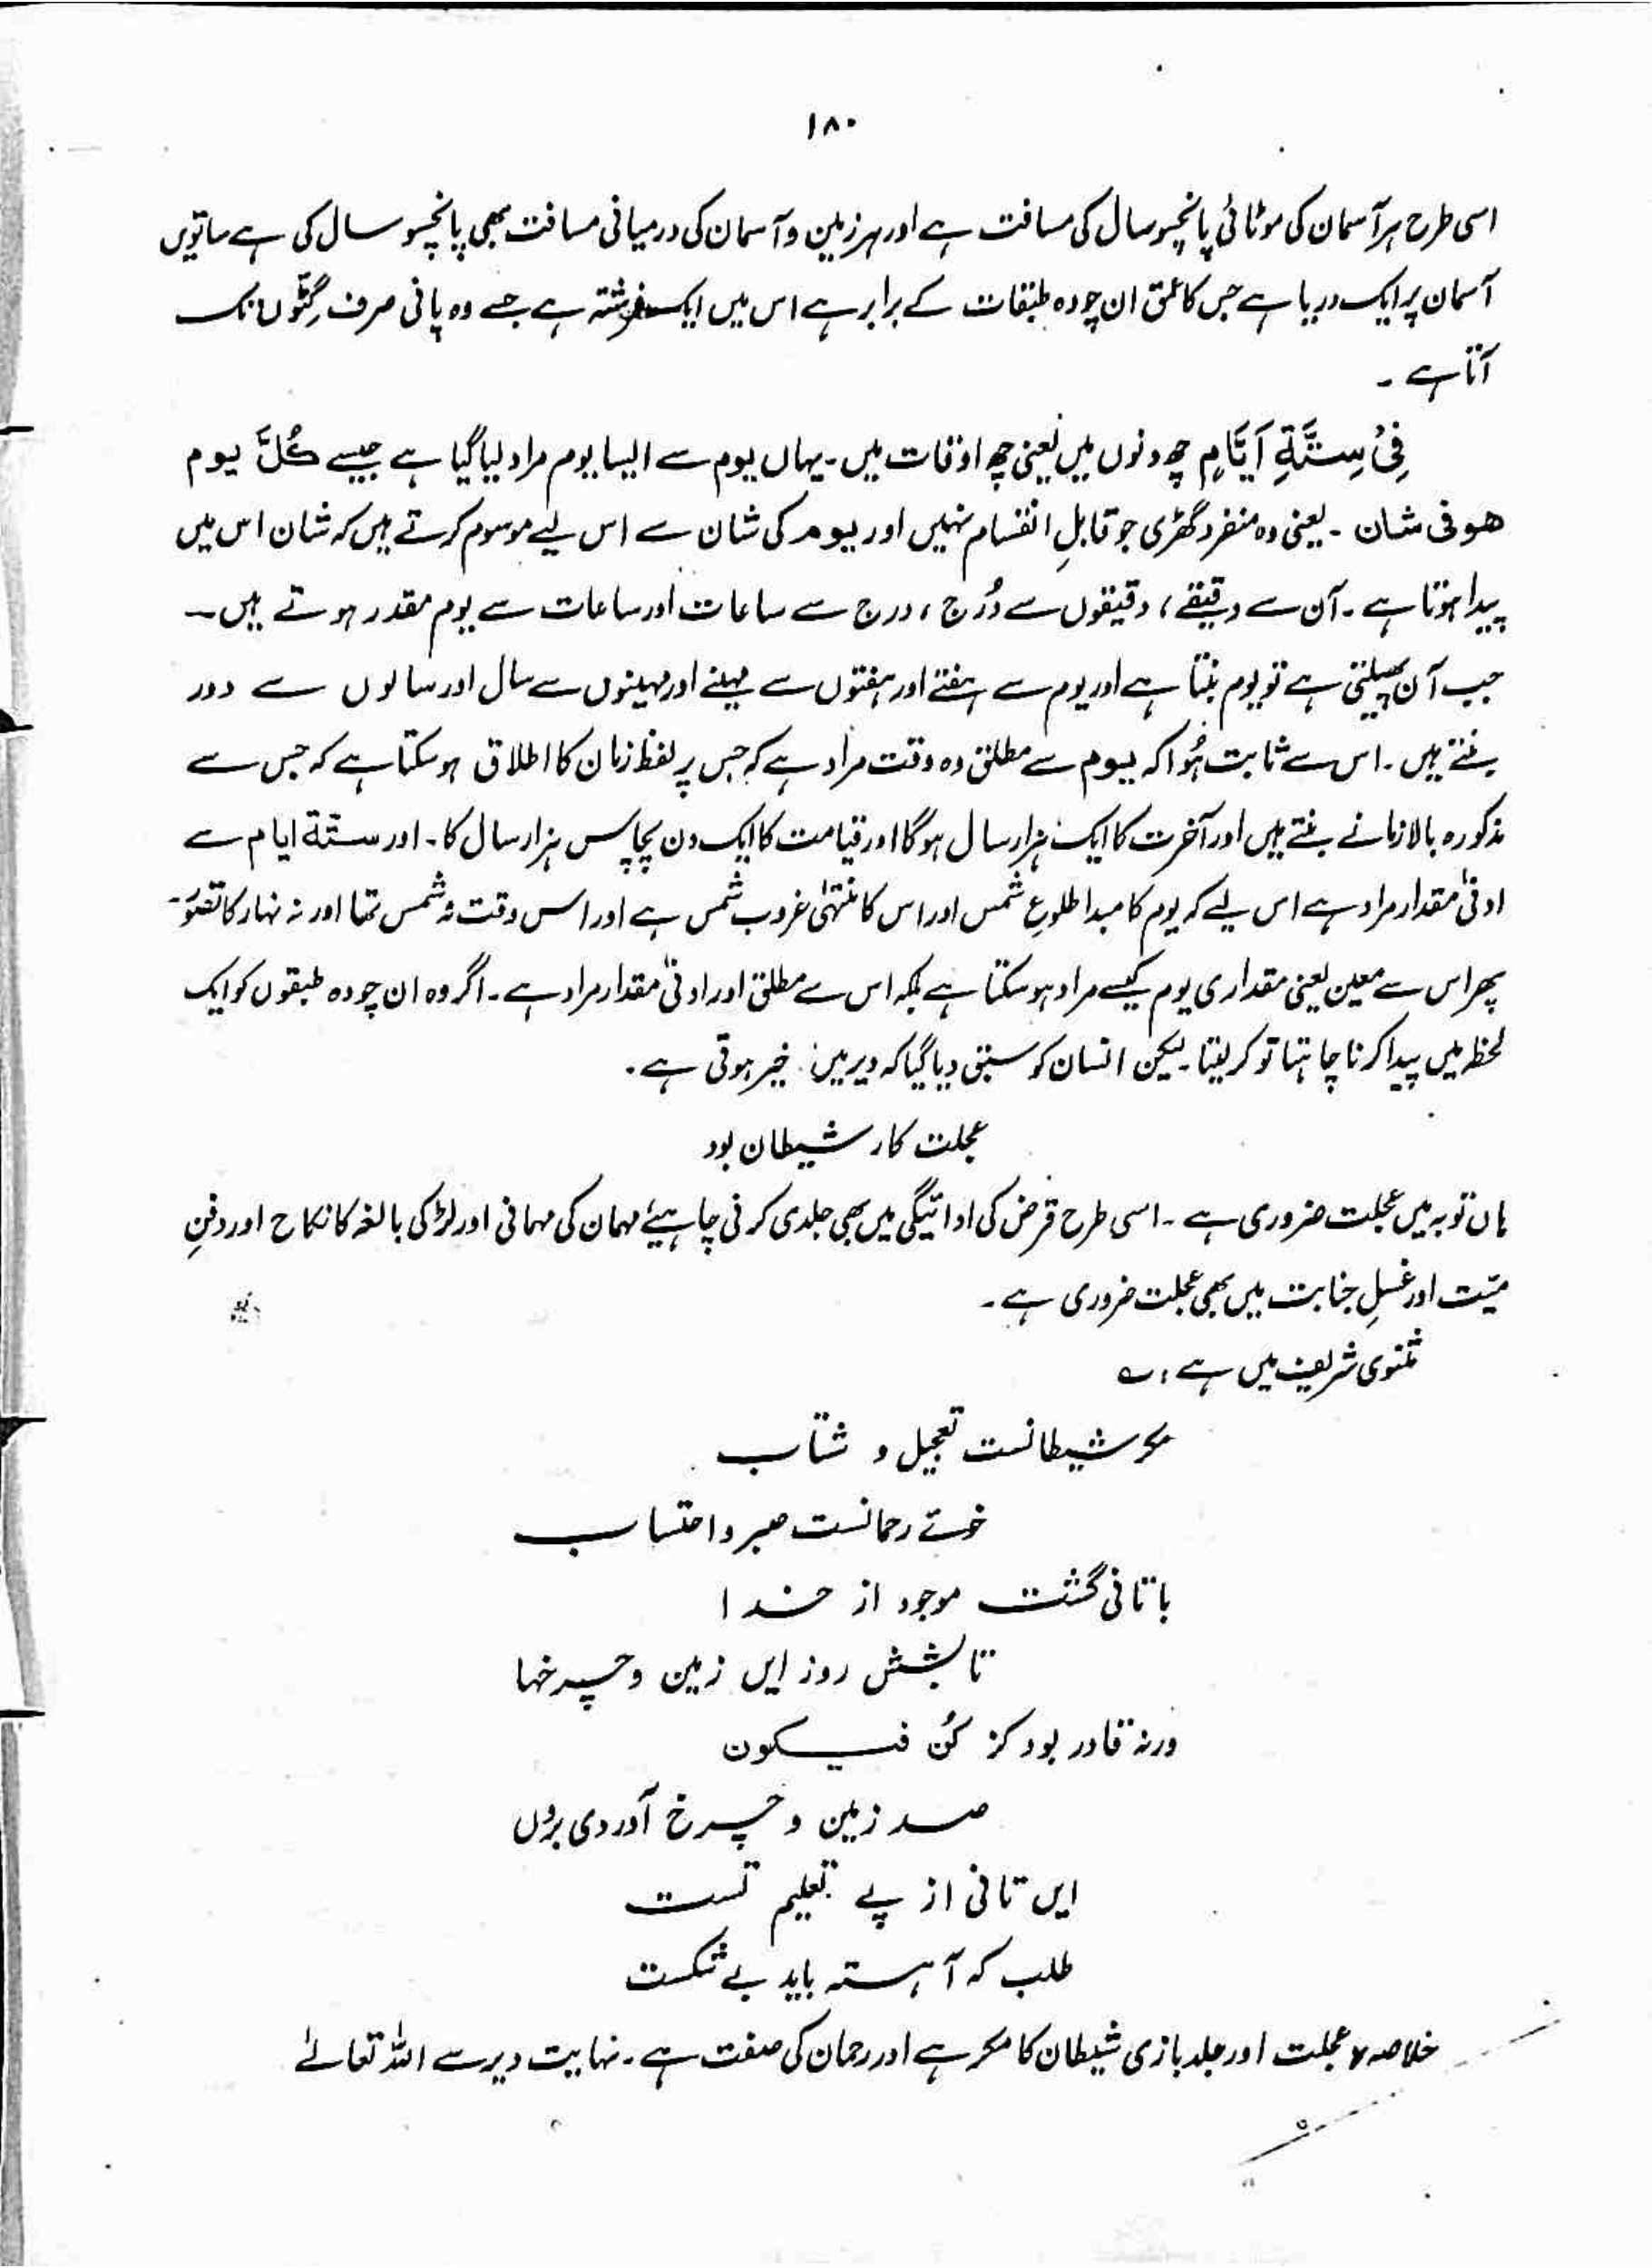 ۱۸۰
اسی طرح ہر آسمان کی موٹائی پانچسو سال کی مسافت ہے اور ہر زمین و آسمان کی درمیانی مسافت بھی پانچسو سال کی ہے ساتویں
آسمان پر ایک دریا ہے جس کا عمق ان چودہ طبقات کے برابر ہے اس میں ایک فرشتہ ہے جسے وہ پانی صرف گِٹّوں تک
آتا ہے ۔
فِیْ سِتَّةِ اَیَّامٍ چھ دنوں میں یعنی چھ اوقات میں ۔ یہاں یوم سے ایسا یوم مراد لیا گیا ہے جیسے کُلَّ یوم
ھو فی شان ۔ یعنی وہ منفرد گھڑی جو قابلِ انقسام نہیں اور یوم کی شان سے اس لیے موسوم کرتے ہیں کہ شان اس میں
پیدا ہوتا ہے ۔ آن سے دقیقے ، دقیقوں سے دُرج ، درج سے ساعات اور ساعات سے یوم مقدر ہوتے ہیں ۔
جب آن پھیلتی ہے تو یوم بنتا ہے اور یوم سے ہفتے اور ہفتوں سے مہینے اور مہینوں سے سال اور سالوں سے دور
بنتے ہیں ۔ اس سے ثابت ہُوا کہ یوم سے مطلق وہ وقت مراد ہے کہ جس پر لفظ زمان کا اطلاق ہو سکتا ہے کہ جس سے
مذکورہ بالا زمانے بنتے ہیں اور آخرت کا ایک ہزار سال ہوگا اور قیامت کا ایک دن پچاس ہزار سال کا ۔ اور ستة ایام سے
ادنیٰ مقدار مراد ہے اس لیے کہ یوم کا مبدا طلوعِ شمس اور اس کا منتہیٰ غروب شمس ہے اور اس وقت نہ شمس تھا اور نہ نہار کا تصوّر ۔
پھر اس سے معین یعنی مقداری یوم کیسے مراد ہو سکتا ہے بلکہ اس سے مطلق اور ادنیٰ مقدار مراد ہے ۔ اگر وہ ان چودہ طبقوں کو ایک
لحظہ میں پیدا کرنا چاہتا تو کر لیتا ۔ لیکن انسان کو سبق دیا گیا کہ دیر میں خیر ہوتی ہے ۔
عجلت کار شیطان بود
ہاں توبہ میں عجلت ضروری ہے ۔ اسی طرح قرض کی ادائیگی میں بھی جلدی کرنی چاہیئے مہمان کی مہمانی اور لڑکی بالغہ کا نکاح اور دفنِ
میّت اور غسلِ جنابت میں بھی عجلت ضروری ہے ۔
مثنوی شریف میں ہے : ؎
مکر شیطانست تعجیل و شتاب
خوئے رحمانست صبر و احتساب
با تانی گشت موجود از خدا
تا بشش روز ایں زمین و چرخہا
ورنہ قادر بود کز کُن فیکون
صد زمین و چرخ آوردی بروں
ایں تانی از پے تعلیم تست
طلب کہ آہستہ باید بے شکست
خلاصہ عجلت اور جلد بازی شیطان کا مکر ہے اور رحمان کی صفت ہے ۔ نہایت دیر سے اللہ تعالےٰ